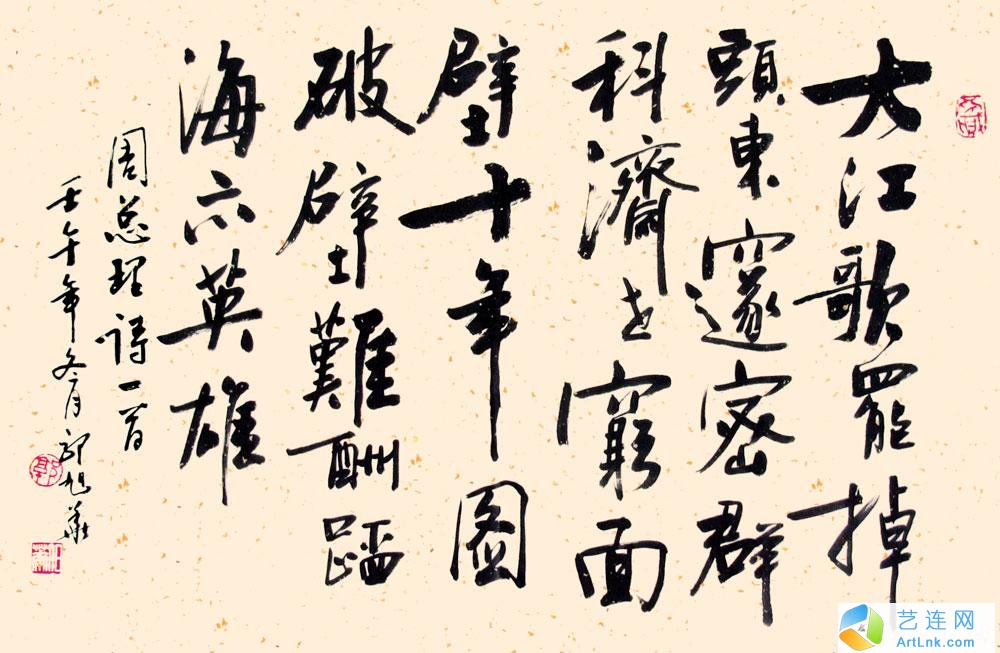 大江歌罷掉
頭東邃密群
科濟世窮面
壁十年圖
破壁難酬蹈
海亦英雄
周总理詩一首
壬午年冬月郭旭
郭
艺连网
ArtLnk.com